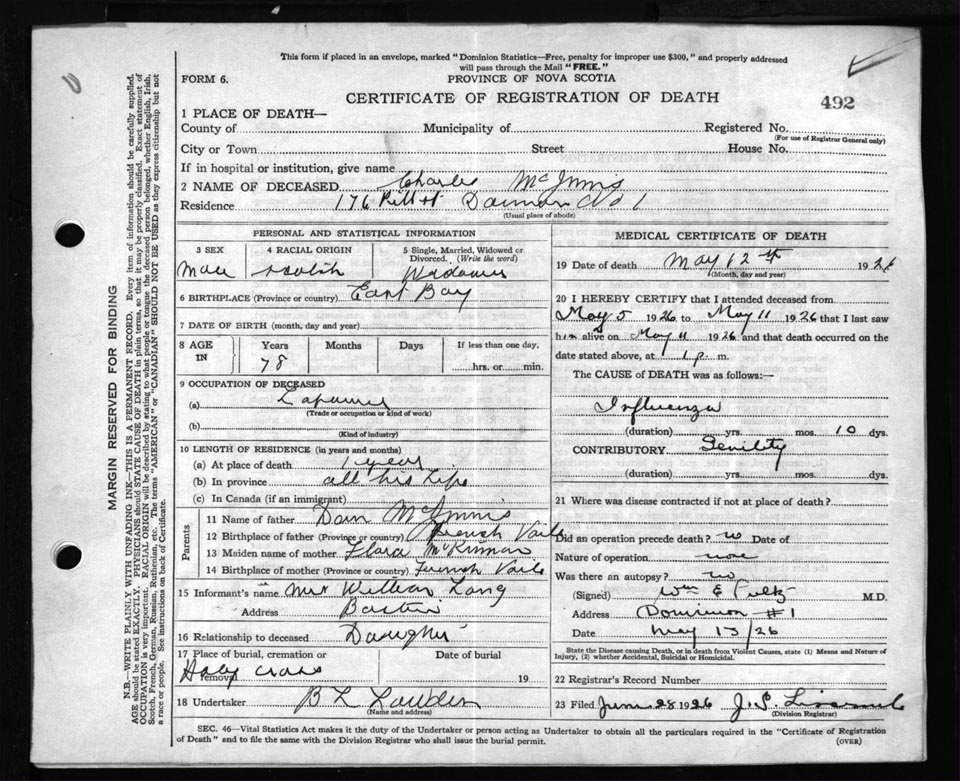 This form if placed in an envelope, marked "Dominion Statistics—Free, penalty for improper use $300," and properly addressed
will pass through the Mail "FREE."
FORM 6.
PROVINCE OF NOVA SCOTIA
CERTIFICATE OF REGISTRATION OF DEATH
492
1 PLACE OF DEATH—
County of Municipality of Registered No.
(For use of Registrar General only)
City or Town Street House No.
If in hospital or institution, give name
2 NAME OF DECEASED Charles McInnis
Residence 176 Pitt St Dominion No 1
(Usual place of abode)
PERSONAL AND STATISTICAL INFORMATION
3 SEX Male
4 RACIAL ORIGIN Scotch
5 Single, Married, Widowed or Divorced. (Write the word)
Widower
6 BIRTHPLACE (Province or country) East Bay
7 DATE OF BIRTH (month, day and year)
8 AGE IN Years Months Days If less than one day,
78 hrs. or min.
9 OCCUPATION OF DECEASED
(a)
(Trade or occupation or kind of work)
(b)
(Kind of industry)
10 LENGTH OF RESIDENCE (in years and months)
(a) At place of death 1 year
(b) In province all his life
(c) In Canada (if an immigrant)
Parents
11 Name of father Dan McInnis
12 Birthplace of father (Province or country) French Vale
13 Maiden name of mother Flora McKinnon
14 Birthplace of mother (Province or country) French Vale
15 Informant's name Mrs William Lang
Address Boston
16 Relationship to deceased Daughter
17 Place of burial, cremation or removal Date of burial
Holy Cross 19
18 Undertaker B L
(Name and address)
MEDICAL CERTIFICATE OF DEATH
19 Date of death May 12th 1926
(Month, day and year)
20 I HEREBY CERTIFY that I attended deceased from
May 5 1926 to May 11 1926 that I last saw
him alive on May 11 1926 and that death occurred on the
date stated above, at 1 p. m.
The CAUSE of DEATH was as follows:—
Influenza
(duration) yrs. mos. 10 dys.
CONTRIBUTORY Senility
(duration) yrs. mos. dys.
21 Where was disease contracted if not at place of death?
Did an operation precede death? no Date of
Nature of operation none
Was there an autopsy? no
(Signed) Wm E M.D.
Address Dominion #1
Date May 13/26
State the Disease causing Death, or in death from Violent Causes, state (1) Means and Nature of
Injury, (2) whether Accidental, Suicidal or Homicidal.
22 Registrar's Record Number
23 Filed June 28 1926 J. S.
(Division Registrar)
SEC. 46—Vital Statistics Act makes it the duty of the Undertaker or person acting as Undertaker to obtain all the particulars required in the "Certificate of Registration
of Death" and to file the same with the Division Registrar who shall issue the burial permit.
(OVER)
MARGIN RESERVED FOR BINDING
N.B.—WRITE PLAINLY WITH UNFADING INK—THIS IS A PERMANENT RECORD. Every item of information should be carefully supplied.
AGE should be stated EXACTLY. PHYSICIANS should STATE CAUSE OF DEATH in plain terms, so that it may be properly classified. Exact statement of
OCCUPATION is very important. RACIAL ORIGIN will be described by stating to what people or tongue the deceased person belonged, whether English, Irish,
Scotch, French, German, Russian, Ruthenian, etc. The terms "AMERICAN" or "CANADIAN" SHOULD NOT BE USED as they express citizenship but not
a race or people. See instructions on back of Certificate.